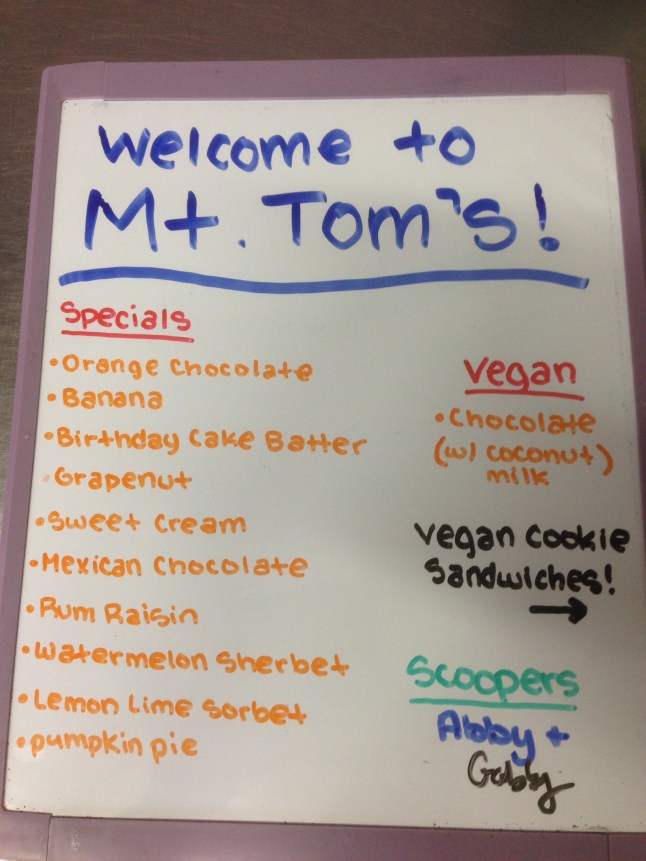 Welcome to
Mt. Tom's!
Specials
• Orange Chocolate
• Banana
• Birthday Cake Batter
• Grapenut
• Sweet Cream
• Mexican Chocolate
• Rum Raisin
• Watermelon Sherbet
• Lemon Lime Sorbet
• Pumpkin pie
Vegan
• Chocolate
(w/ coconut)
milk
Vegan Cookie
Sandwiches!
→
Scoopers
Abby +
Gabby